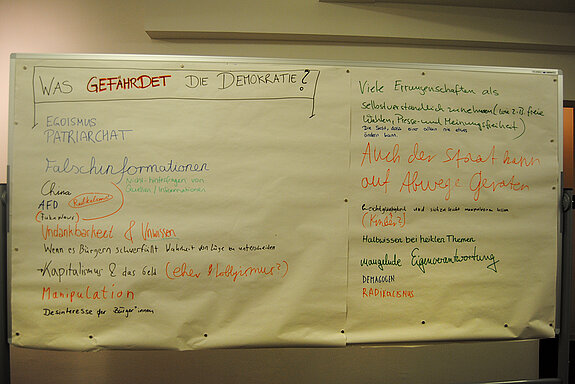 WAS GEFÄHRDET DIE DEMOKRATIE?
EGOISMUS
PATRIARCHAT
Falschinformationen
Nicht-hinterfragen von
Quellen / Informationen
China
AFD
Radikalismus
Undankbarkeit & Unwissen
Wenn es Bürgern schwerfällt Wahrheit von Lüge zu unterscheiden
Kapitalismus & das Geld (eher Lobbyismus?)
Manipulation
Desinteresse der Bürger*innen
Viele Errungenschaften als
selbstverständlich zu nehmen (wie z.B. freie
Wahlen, Presse- und Meinungsfreiheit)
ändern kann.
Auch der Staat kann
auf Abwege Geraten
Leichtgläubigkeit und sich leicht manipulieren lassen
Halbwissen bei heiklen Themen
mangelnde Eigenverantwortung
DEMAGOGIN
RADIKALISMUS